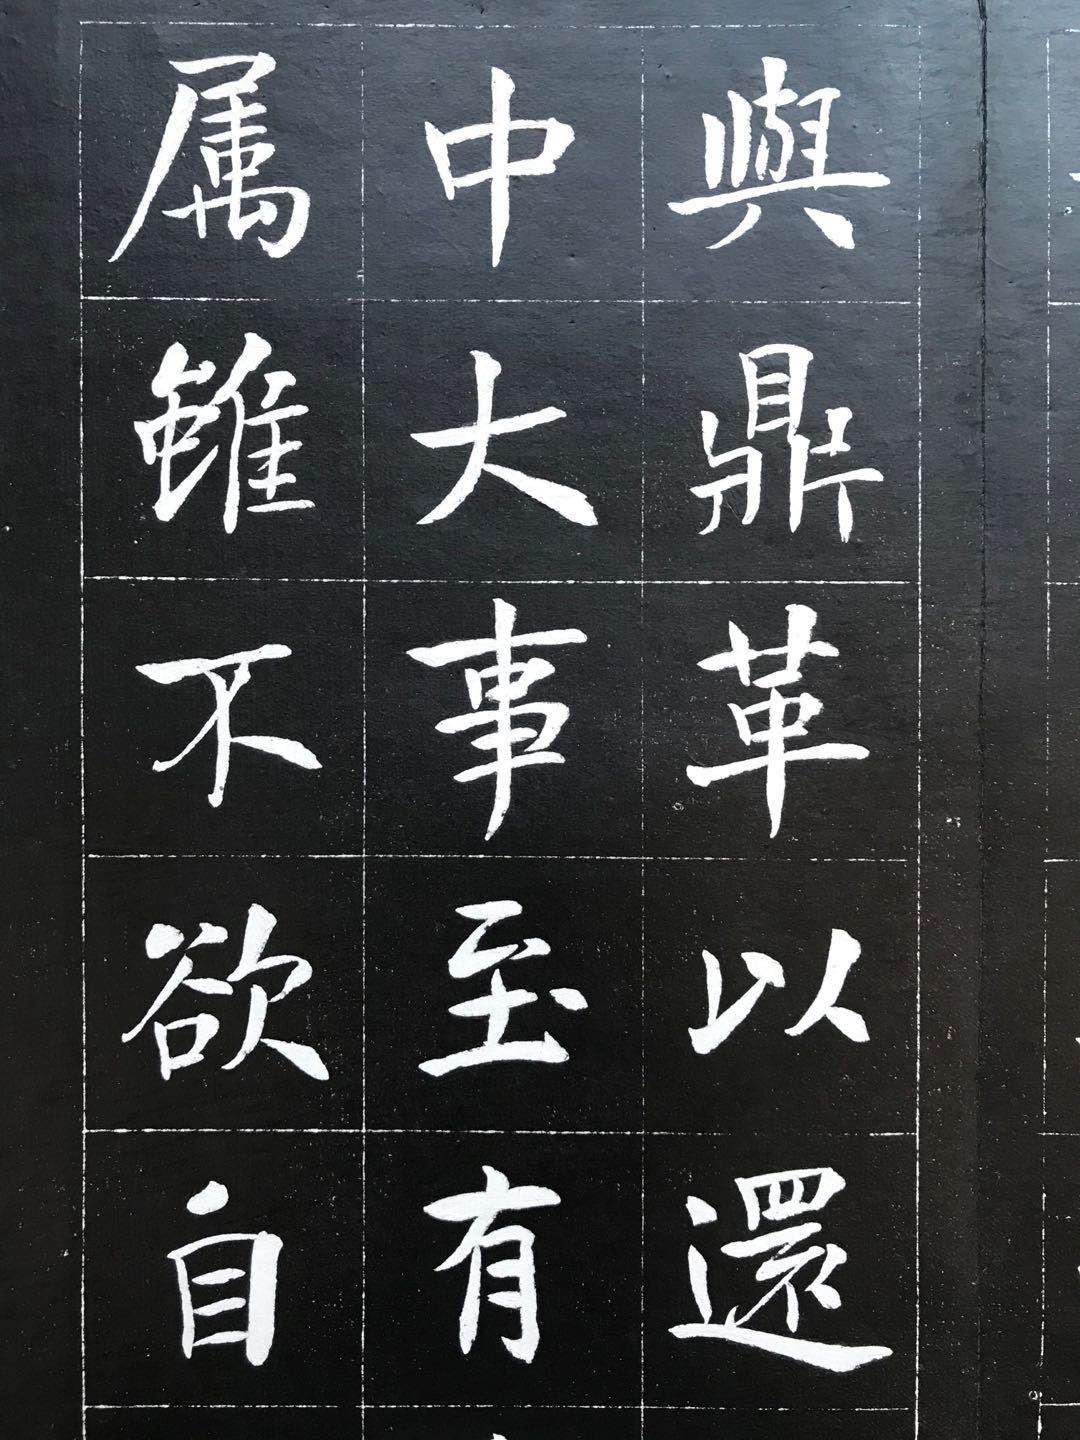 與鼎革以還
中大事至有
属雖不欲自